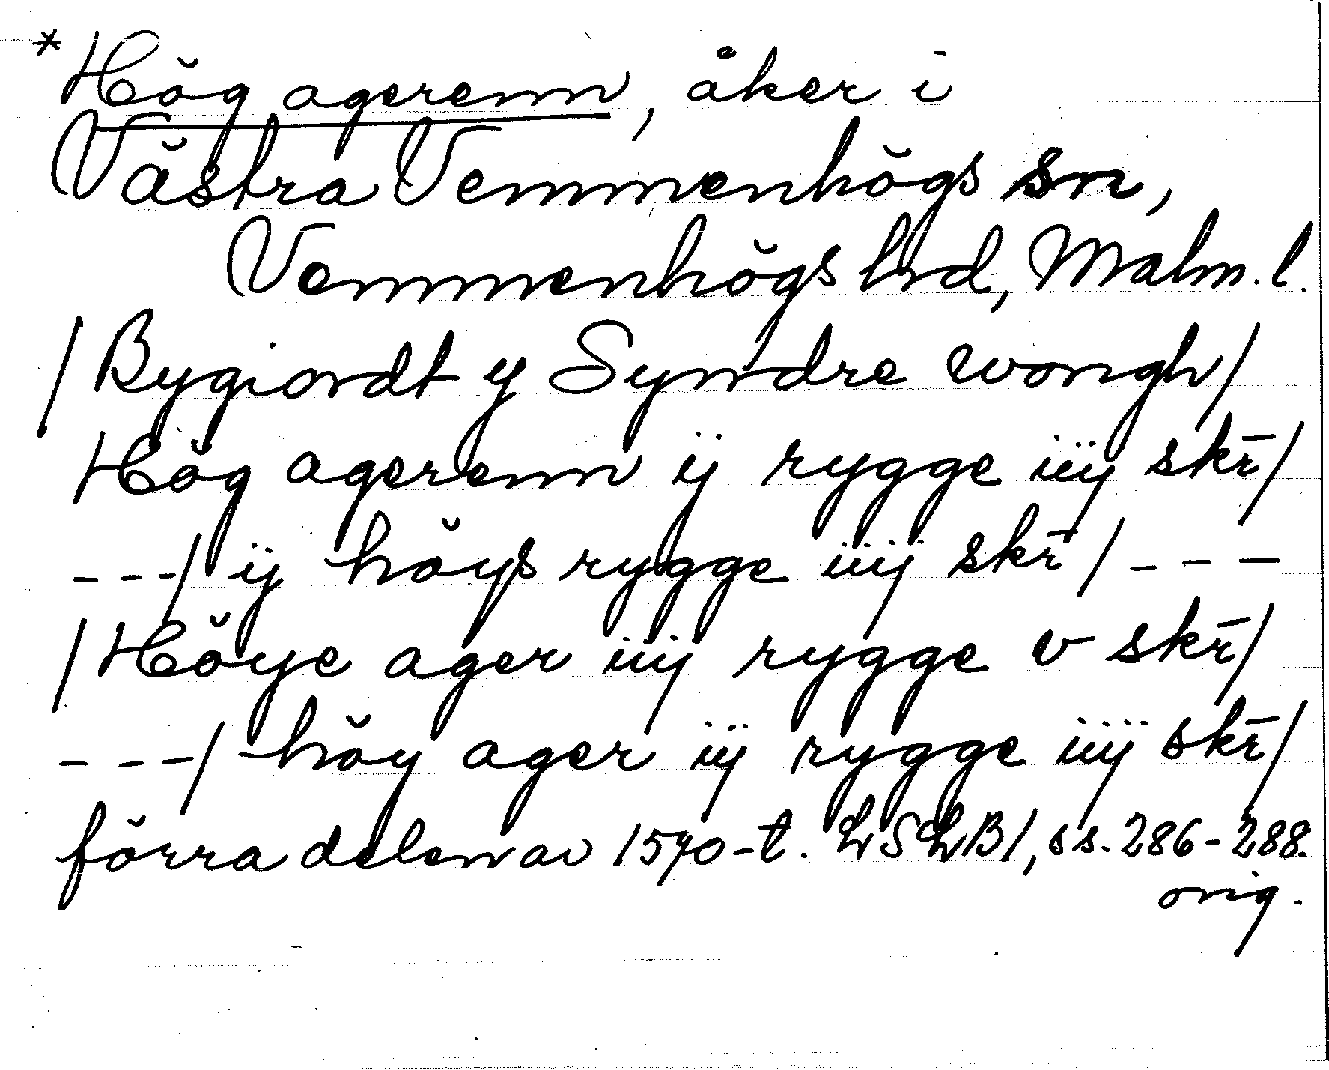 *Hög agerenn, åker i
Västra Vemmenhögs sn,
Vemmenhögs hrd, Malm. l.
/Bygiordt y Syndre wongh/
Hög agerenn ij rygge iiij skr̄/
---/ ij höys rygge iiij skr̄/---
/Höye ager iiij rygge v skr̄/
---/ höy ager iij rygge iiij skr̄/
förra delen av 1570-t. LSLB1, ss. 286-288.
orig.